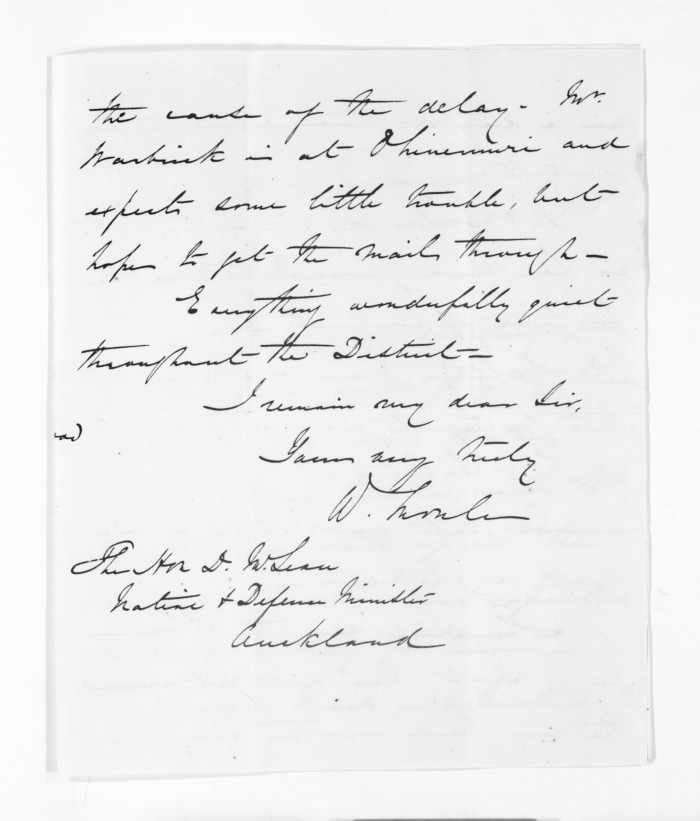 the cause of the delay - Mr.
Warbrick is at Ohinemuri and
expects some little trouble, but
hopes to get the mails through -
Everything wonderfully quiet
throughout the District -
I remain my dear Sir,
Yours very truly
W. Moule
The Hon D. McLean
Native & Defence Minister
Auckland